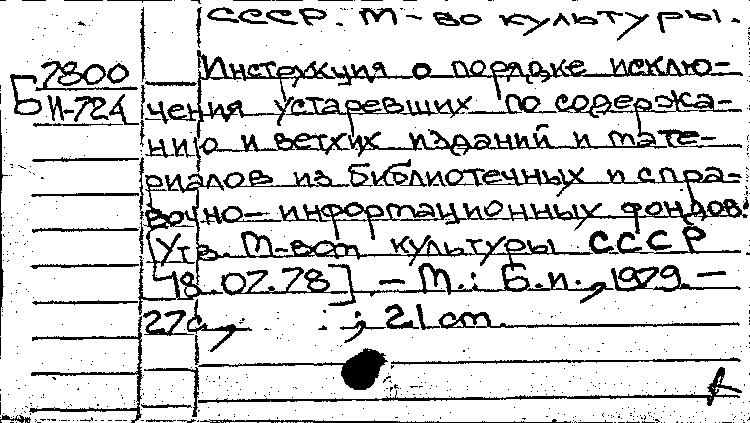 СССР. М-во культуры.
Б 7800
И-724
Инструкция о порядке исклю-
чения устаревших по содержа-
нию и ветхих изданий и мате-
риалов из библиотечных и спра-
вочно-информационных фондов.
[Утв. М-вом культуры СССР
18.07.78]. - М.: Б.и., 1979. -
27с, ; 21 cm.